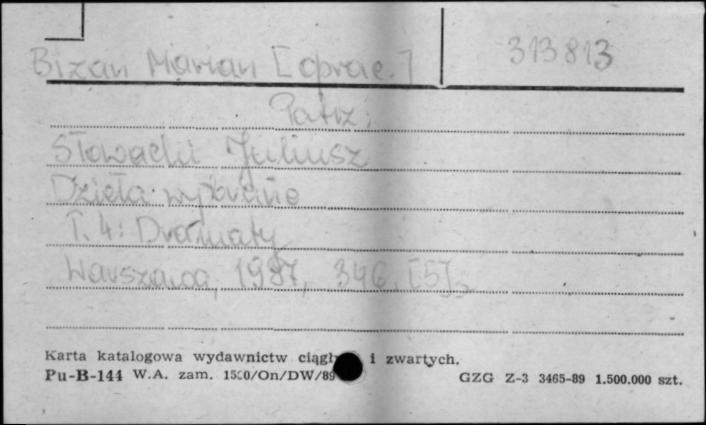 Bizan Marian [oprac.] 313813
Patrz:
Słowacki Juliusz
Dzieła wybrane
T. 4: Dramaty
Warszawa, 1987, 346, [5] s
Karta katalogowa wydawnictw ciągły i zwartych.
Pu-B-144 W.A. zam. 1500/On/DW/89 GZG Z-3 3465-89 1.500.000 szt.